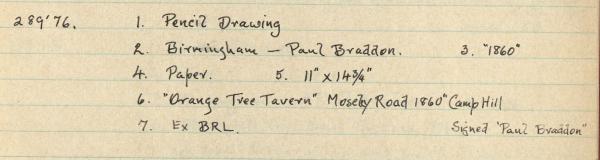 289'76. 1. Pencil Drawing
2. Birmingham — Paul Braddon. 3. "1860"
4. Paper. 5. 11" x 14¾"
6. "Orange Tree Tavern" Mosely Road 1860" Camp Hill
7. Ex BRL. Signed "Paul Braddon"